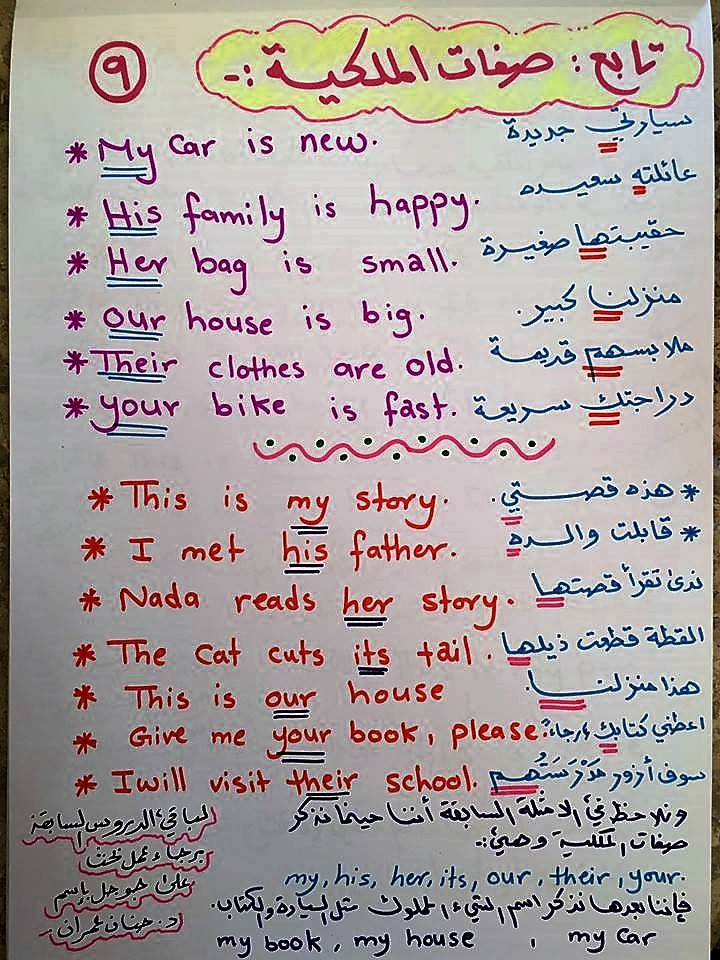 تابع: صفات الملكية :-
٩
* My car is new. سيارتي جديدة
* His family is happy. عائلته سعيده
* Her bag is small. حقيبتها صغيرة
* our house is big. منزلنا كبير.
* Their clothes are old. ملابسهم قديمة
* your bike is fast. دراجتك سريعة
* This is my story. * هذه قصتي.
* I met his father. * قابلت والده
* Nada reads her story. ندى تقرأ قصتها
* The cat cuts its tail. القطة قطعت ذيلها
* This is our house هذا منزلنا.
* Give me your book, please. اعطني كتابك رجاءً
* I will visit their school. سوف أزور مَدْرَسَتُهم
ونلاحظ في الامثلة السابقة أننا حينما نذكر
صفات الملكية وهي:-
my, his, her, its, our, their, your.
فإننا بعدها نذكر اسم الشيء المملوك مثل السيارة والكتاب.
my book, my house , my car
لباقي الدروس السابقة
برجاء عمل بحث
على جوجل بإسم
د. حنان عمران.